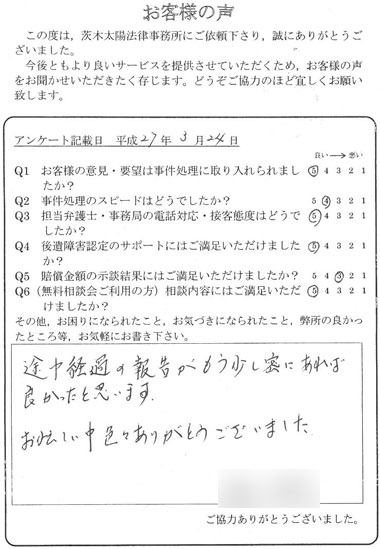 お客様の声
この度は，茨木太陽法律事務所にご依頼下さり，誠にありがとうご
ざいました。
今後ともより良いサービスを提供させていただくため，お客様の声
をお聞かせいただきたく存じます。どうぞご協力のほど宜しくお願い
致します。
アンケート記載日　平成27年3月24日
良い→悪い
Q1　お客様の意見・要望は事件処理に取り入れられまし　5 4 3 2 1
たか？
Q2　事件処理のスピードはどうでしたか？　5 4 3 2 1
Q3　担当弁護士・事務局の電話対応・接客態度はどうで　5 4 3 2 1
したか？
Q4　後遺障害認定のサポートにはご満足いただけました　5 4 3 2 1
か？
Q5　賠償金額の示談結果にはご満足いただけましたか？　5 4 3 2 1
Q6（無料相談会ご利用の方）相談内容にはご満足いただ　5 4 3 2 1
けましたか？
その他，お困りになられたこと，お気づきになられたこと，弊所の良かっ
たところ等，お気軽にお書き下さい。
途中経過の報告がもう少し密にあれば
良かったと思います。
お忙しい中色々ありがとうございました
ご協力ありがとうございました。